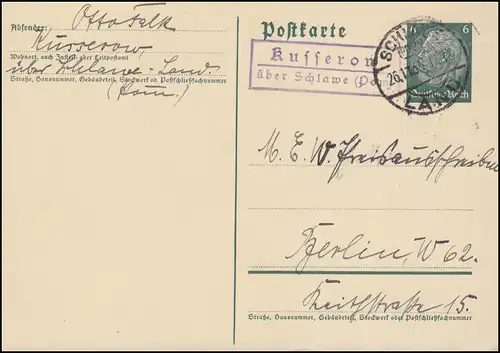 Absender: Otto Falk
Kusserow
Wohnort, auch Zustell- oder Leitpostamt
über Schlawe-Land.
Straße, Hausnummer, Gebäudeteil, Stockwerk od. Postschließfachnummer
(Pom.)
Postkarte
6 6
Deutsches Reich
SCHL
26.11
LA
Kusserow
über Schlawe (Pom
M. E. W. Preisausschreiben
Berlin, W 62.
Keithstraße 15.
Straße, Hausnummer, Gebäudeteil, Stockwerk oder Postschließfachnummer